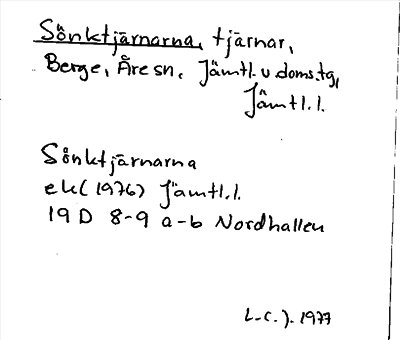 Sönktjärnarna, tjärnar,
Berge, Åre sn, Jämtl. v. doms.tg,
Jämtl. l.
Sönktjärnarna
ek (1976) Jämtl. l.
19 D 8-9 a-b Nordhallen
L-C. J. 1977